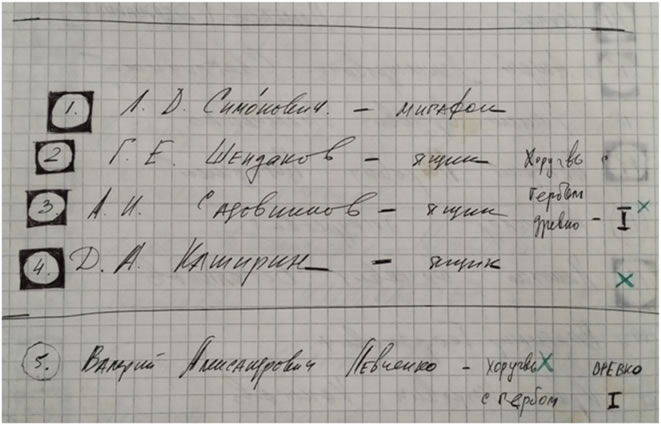 1. Л. D. Симонович. – мигафон
2 Г. Е. Шендаков – ящик Хоругвь с
3. А. И. Садовников – ящик гербом древко – I X
4. D. А. Каширин – ящик X
5. Валерий Александрович Левченко – хоругвь X ДРЕВКО
с гербом I